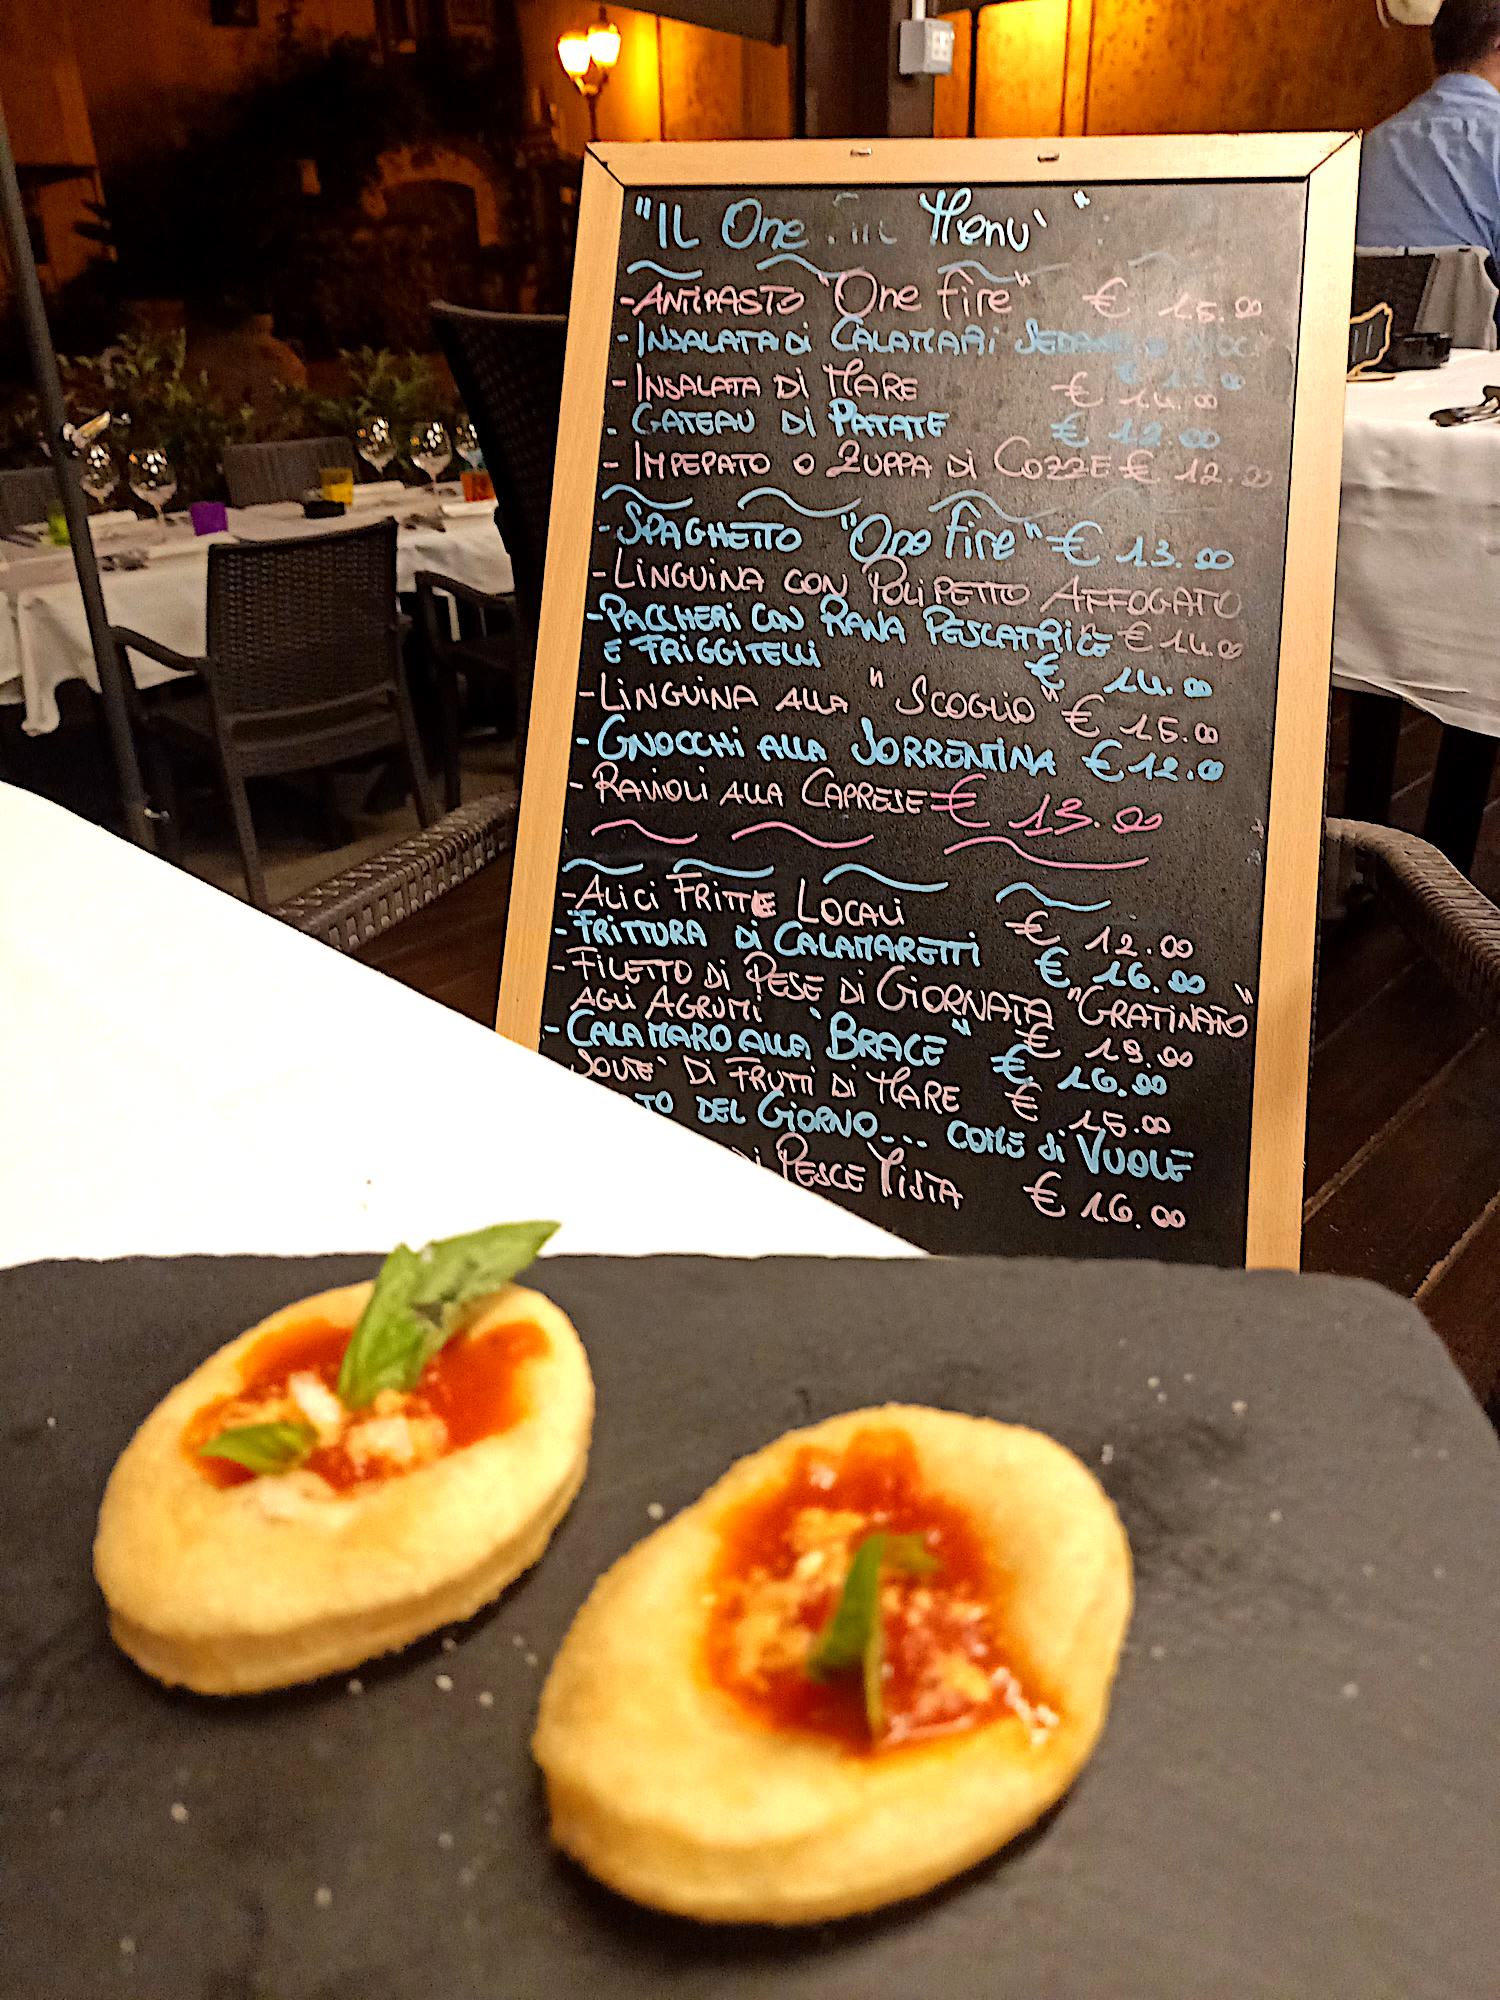 "IL One Menu'"
-ANTIPASTO "One fire" € 15.00
-INSALATA di CALAMARI
-INSALATA di MARE € 14.00
- GATEAU di PATATE € 12.00
- IMPEPATO o ZUPPA di COZZE € 12.00
-SPAGHETTO "One fire" € 13.00
-LINGUINA CON POLIPETTO AFFOGATO
€ 14.00
-PACCHERI CON RANA PESCATRICE
E FRIGGITELLI € 14.00
-LINGUINA ALLA "SCOGLIO" € 15.00
-GNOCCHI ALLA SORRENTINA € 12.00
-RAVIOLI ALLA CAPRESE € 13.00
-ALICI FRITTE LOCALI € 12.00
-FRITTURA di CALAMARETTI € 16.00
-FILETTO di PESE di GIORNATA "GRATINATO"
AGLI AGRUMI € 19.00
-CALAMARO ALLA "BRACE" € 16.00
SOUTE' Di FRUTTI di MARE € 15.00
TO DEL GIORNO... COME Si VUOLE
di PESCE MISTA € 16.00